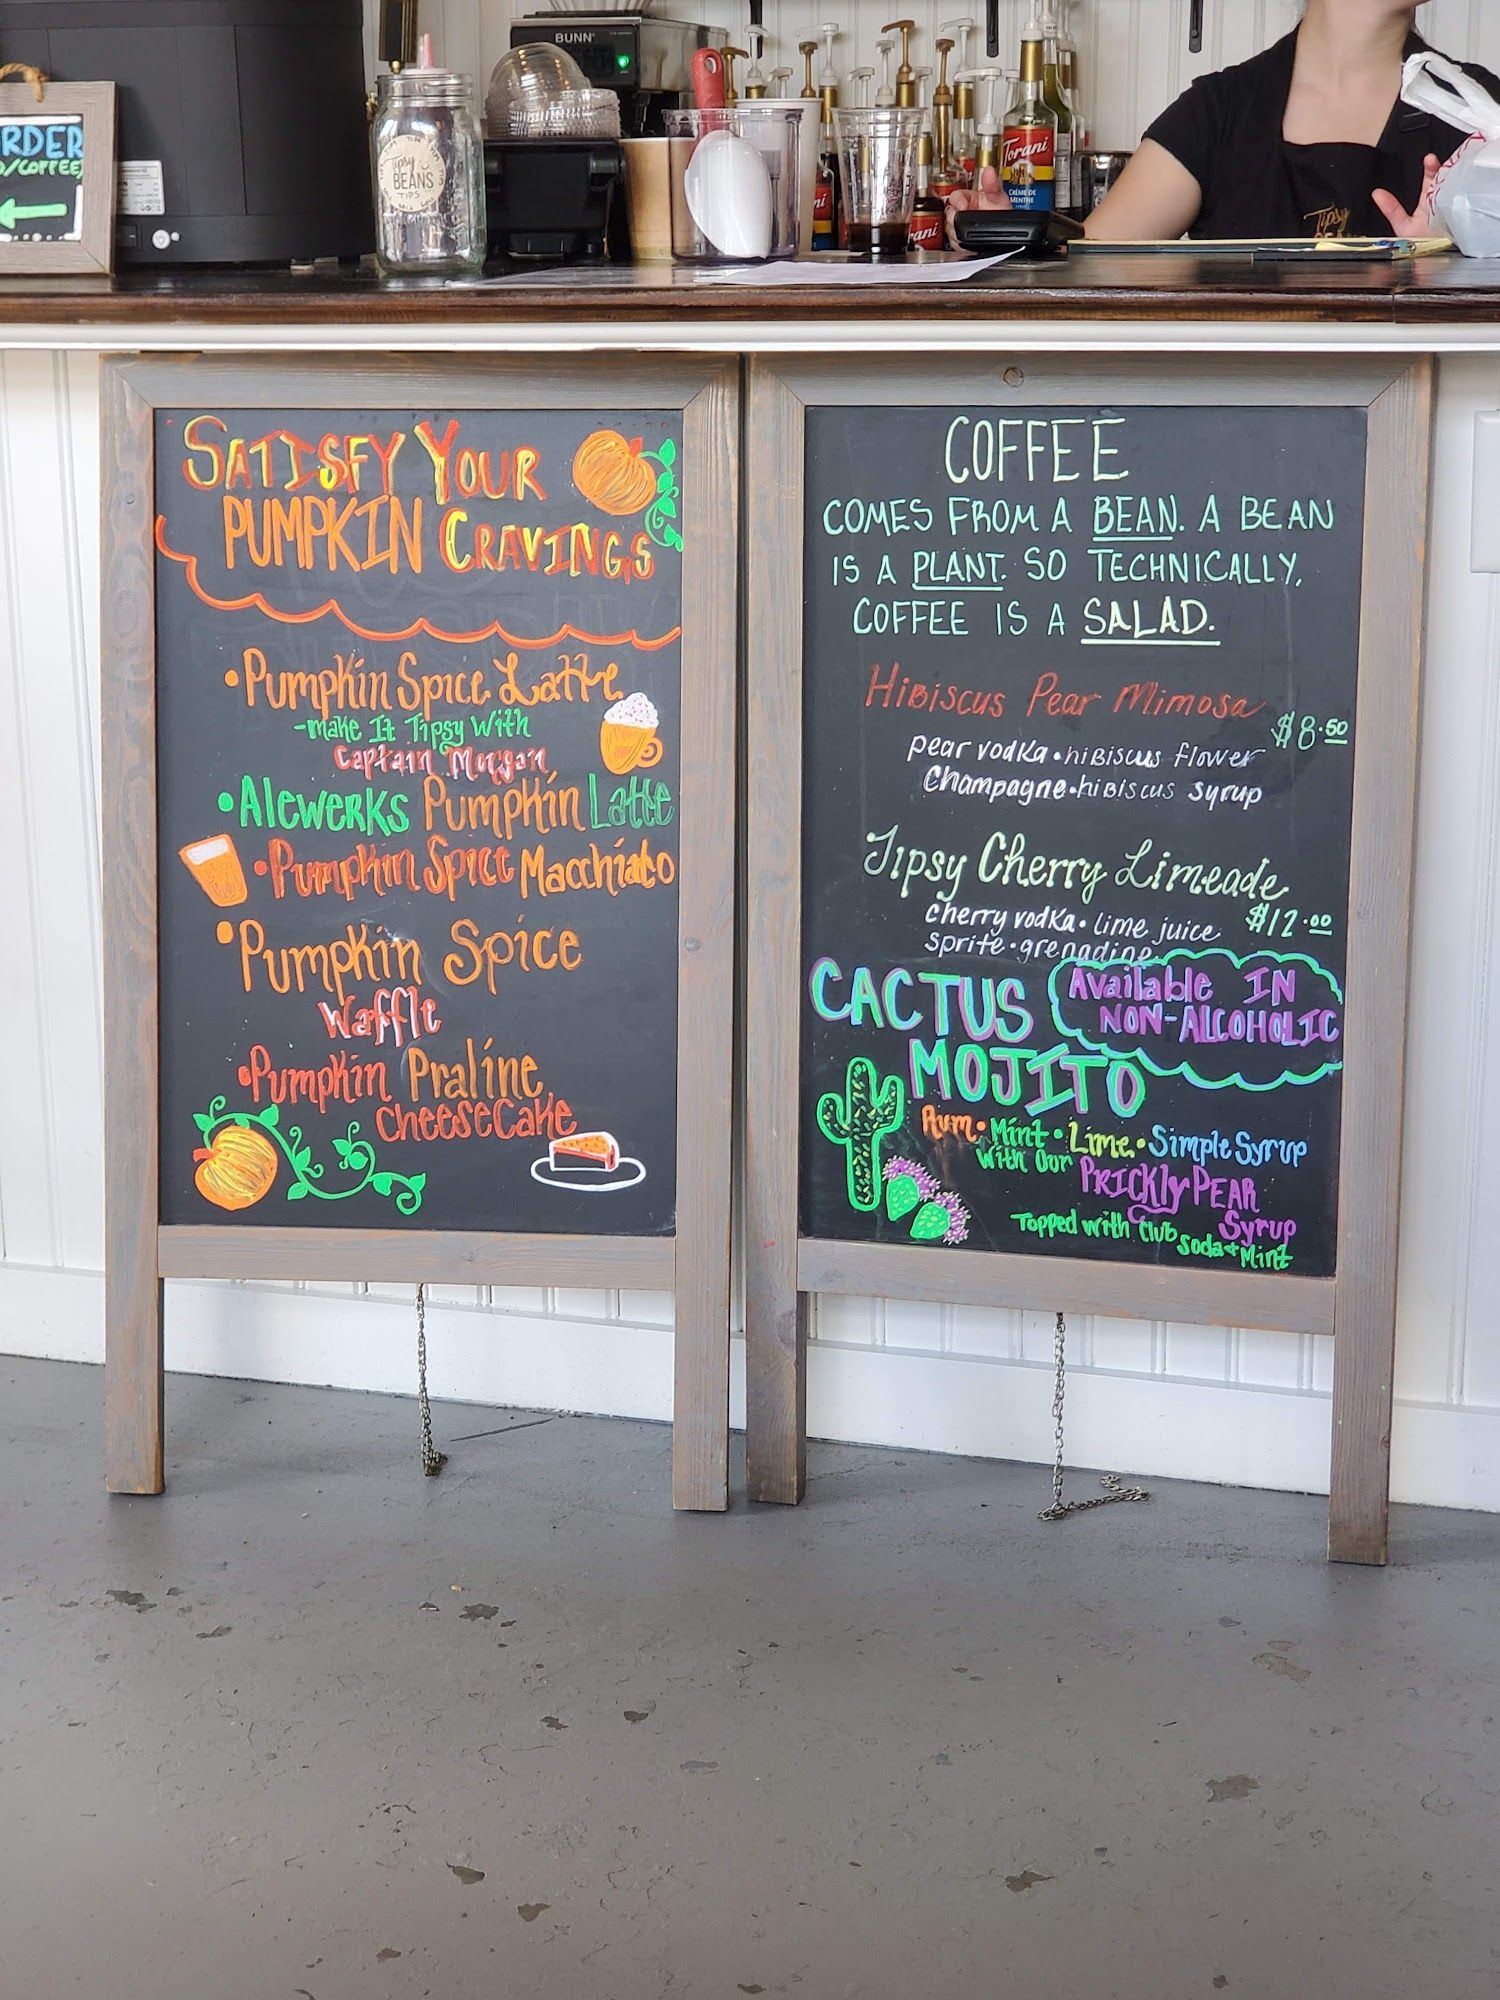 RDER
/COFFEE
BUNN
Tipsy
BEANS
TIPS
Torani
CRÈME DE
MENTHE
Torani
Tipsy
SATISFY YOUR
PUMPKIN CRAVINGS
•Pumpkin Spice Latte
-make It Tipsy With
Captain Morgan
•Alewerks Pumpkin Latte
•Pumpkin Spice Macchiato
•Pumpkin Spice
Waffle
•Pumpkin Praline
CheeseCake
COFFEE
COMES FROM A BEAN. A BEAN
IS A PLANT. SO TECHNICALLY,
COFFEE IS A SALAD.
Hibiscus Pear Mimosa
$8.50
pear vodka • hibiscus flower
Champagne • hibiscus syrup
Tipsy Cherry Limeade
cherry vodka • lime juice $12.00
sprite • grenadine
CACTUS
MOJITO
Available IN
NON-ALCOHOLIC
Rum • Mint • Lime • Simple Syrup
With Our PRICKLY PEAR
Syrup
Topped with Club
Soda + Mint